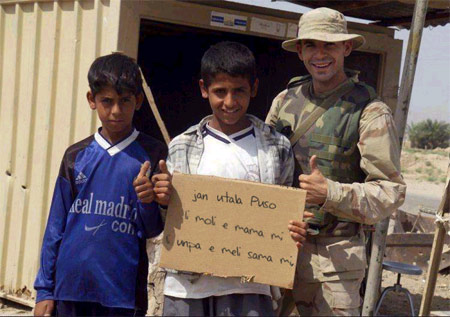 jan utala puso
li moli e mama mi
li unpa e meli sama mi
eal madri
.com